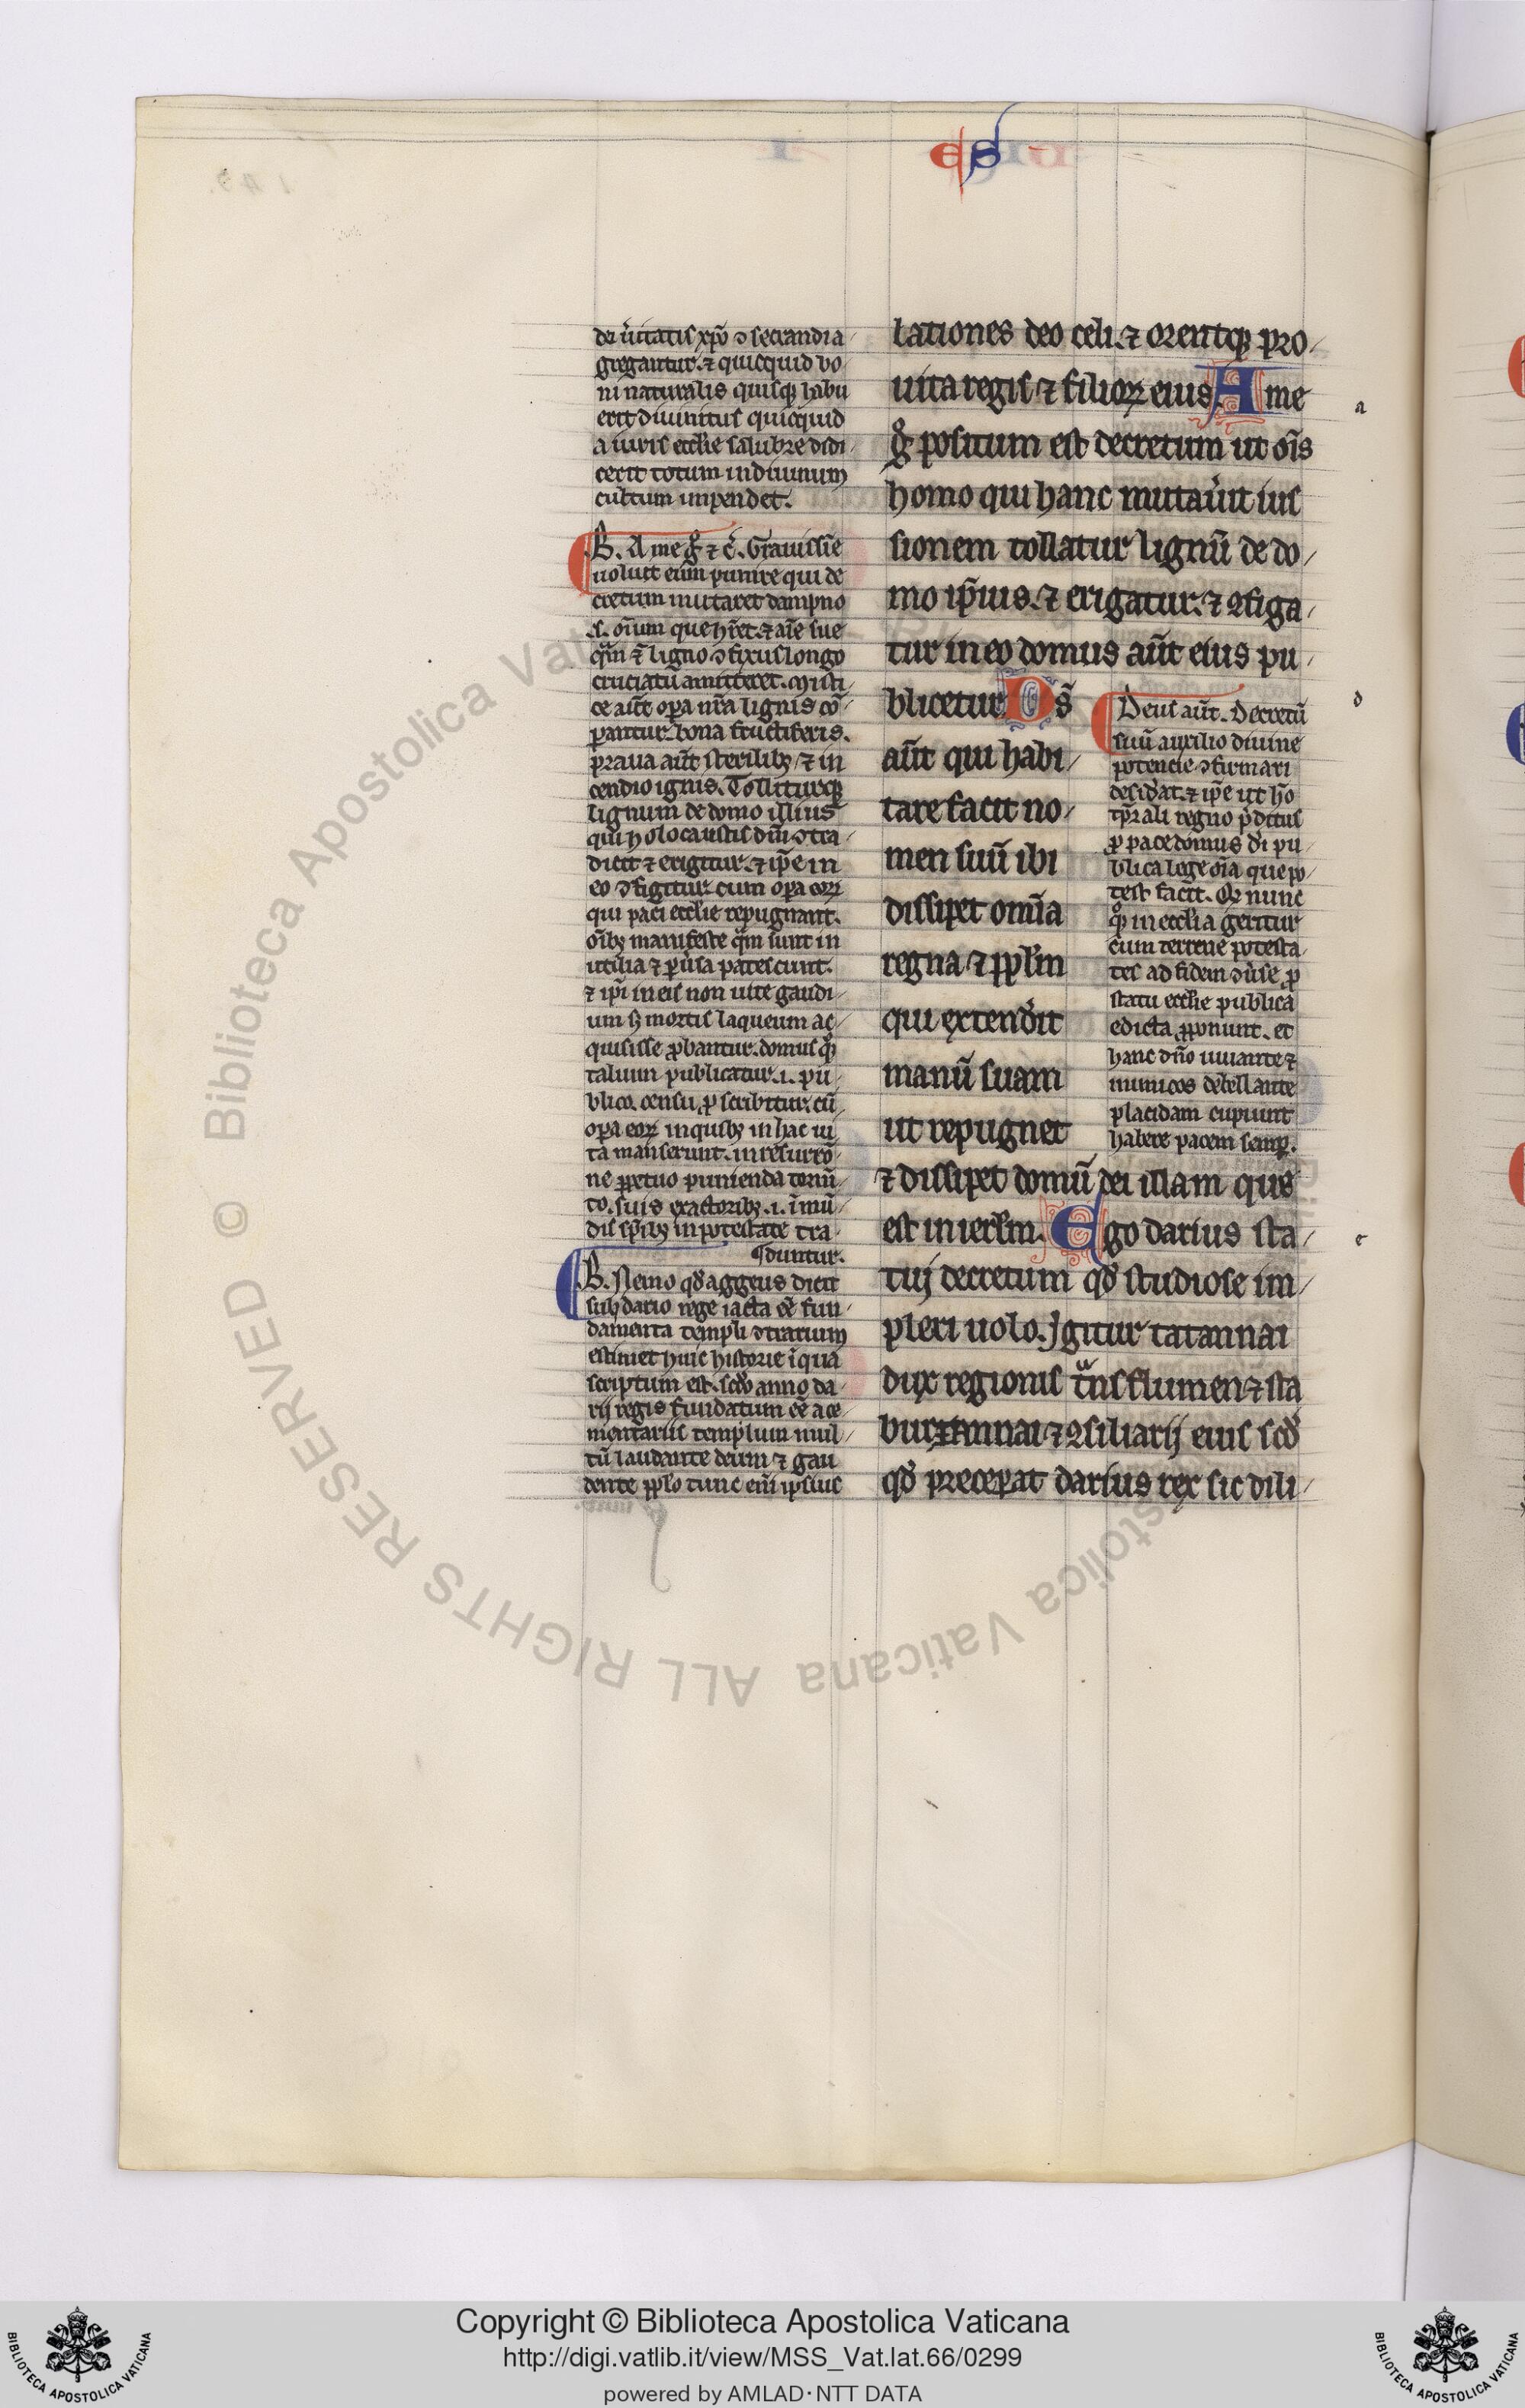 eS
de ūitatis xp̄o ɔsecrandia
gregantur. ⁊ quicquid bo
ni naturalis quisq; habu
erit diuinitus quicquid
a iuris eccl̄ie salubre didi
cerit totum in diuinum
cultum impendet.
B. A me g̊ ⁊ c̄. Grauissīe
uoluit eum punire qui de
cretum mutaret dampno
.s. oīum que hr̄et. ⁊ aīe sue
qm̄ ī ligno ɔfixus longo
cruciatu amitteret. Misti
ce aūt opa nr̄a lignis cō
pantur. bona fructiferis.
praua aūt sterilibꝫ ⁊ in
cendio ignis. Tolliturq;
lignum de domo illius
qui holocaustis dn̄i ɔtra
dicit ⁊ erigitur. ⁊ ip̄e in
eo ɔfigitur cum opa eoꝝ
qui paci eccl̄ie repugnant.
oībꝫ manifeste qm̄ sunt in
utilia ⁊ puersa patescunt.
⁊ ip̄i in eis non uite gaudi
um sꝫ mortis laqueum ac
quisisse ꝓbantur. domus q̊ꝫ
talium publicatur .i. pu
blico censu ꝓscribitur. cū
opa eoꝝ in quibꝫ in hac ui
ta manserunt. in resurrcō
ne ꝑpetuo punienda tormē
to. suis exactoribꝫ .i. īmū
dis sp̄ibꝫ in potestate tra
duntur.
B. Nemo qd̄ aggeus dicit
sub dario rege iacta eē fun
damenta templi ɔtrarium
estimet huic historie ī qua
scriptum est. scd̄o anno da
rij regis fundatum eē a ce
mentariis templum mul
tū laudante deum ⁊ gau
dente pp̄lo tunc eni ipsius
lationes deo celi. ⁊ orentq; pro
uita regis ⁊ filioꝝ eius A me
g̊ positum est decretum ut oīs
homo qui hanc mutau̾it ius
sionem tollatur lignū de do
mo ip̄ius. ⁊ erigatur. ⁊ ꝯfiga
tur in eo domus aūt eius pu
blicetur. Ds̄
aūt qui habi
tare facit no
men suū ibi
dissipet omīa
regna ⁊ pplm̄
qui extend̾it
manū suam
ut repugnet
⁊ dissipet domū dei illam que
est in ierlm̄. Ego darius sta
tuj decretum qd̄ studiose im
pleri uolo. Jgitur tatannai
dux regionis tͣns flumen ⁊ sta
burzannai ⁊ ꝯsiliarij eius scd̄
qd̄ preceperat darius rex sic dili
Deus aūt. Decretū
suū auxilio diuine
potencie ɔfirmari
desid̾at. ⁊ ip̄e ut hō
tp̄rali regno p̄ditus
ꝓ pace domus dī pu
blica lege oīa que po
test facit. Qꝫ nunc
q̊ꝫ in ecclīa geritur
cum terrene potesta
tes ad fidem ɔu̾se ꝓ
statu eccl̄ie publica
edicta ꝓponunt. et
hanc dn̄o iuuante ⁊
inimicos debellante
placidam cupiunt
habere pacem semꝑ.
a
d
e
Copyright © Biblioteca Apostolica Vaticana
http://digi.vatlib.it/view/MSS_Vat.lat.66/0299
powered by AMLAD·NTT DATA
BIBLIOTECA APOSTOLICA VATICANA
BIBLIOTECA APOSTOLICA VATICANA